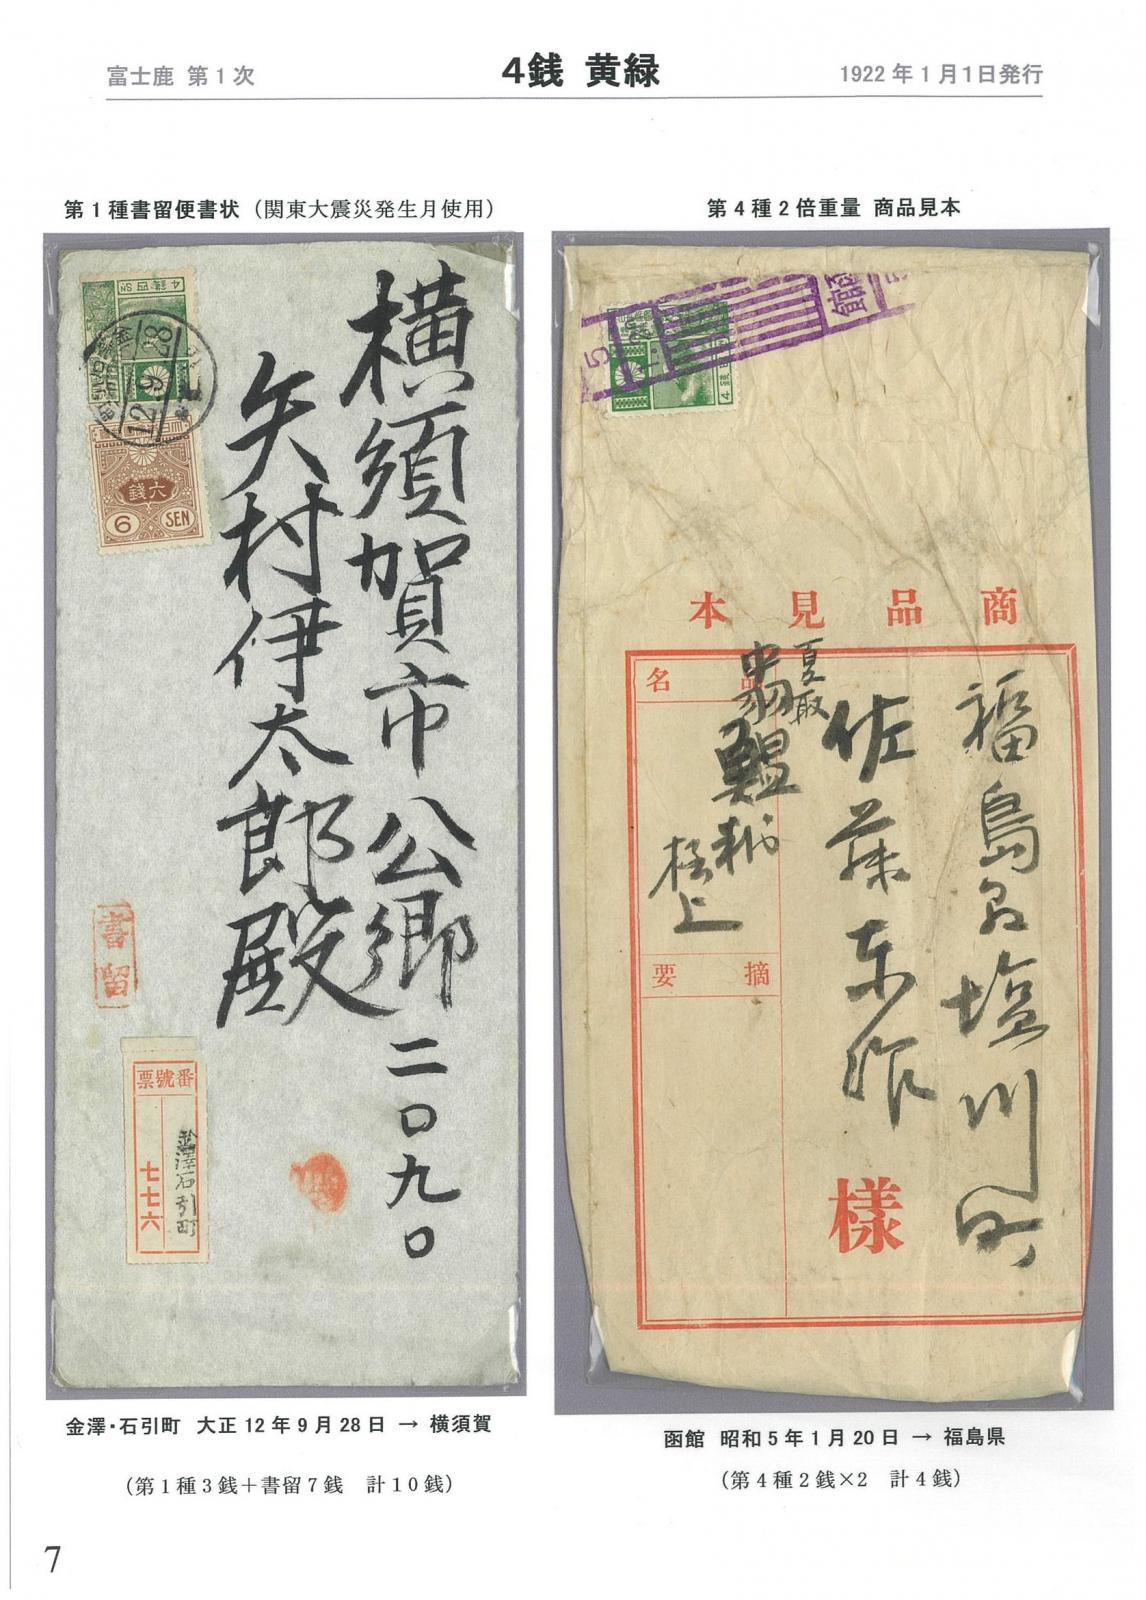 富士鹿 第1次
4銭 黄緑
1922年1月1日発行
第1種書留便書状（関東大震災発生月使用）
4 錢四 SN
12.9.28
六錢
6 SEN
横須賀市公郷二〇九〇
矢村伊太郎殿
書留
票號番
金澤石引町
七七六
金澤・石引町 大正12年9月28日 → 横須賀
（第1種3銭＋書留7銭 計10銭）
第4種2倍重量 商品見本
函館
5
本見品商
福島县塩川町
佐藤東作
様
名品
夏取
極上
要摘
函館 昭和5年1月20日 → 福島県
（第4種2銭×2 計4銭）
7